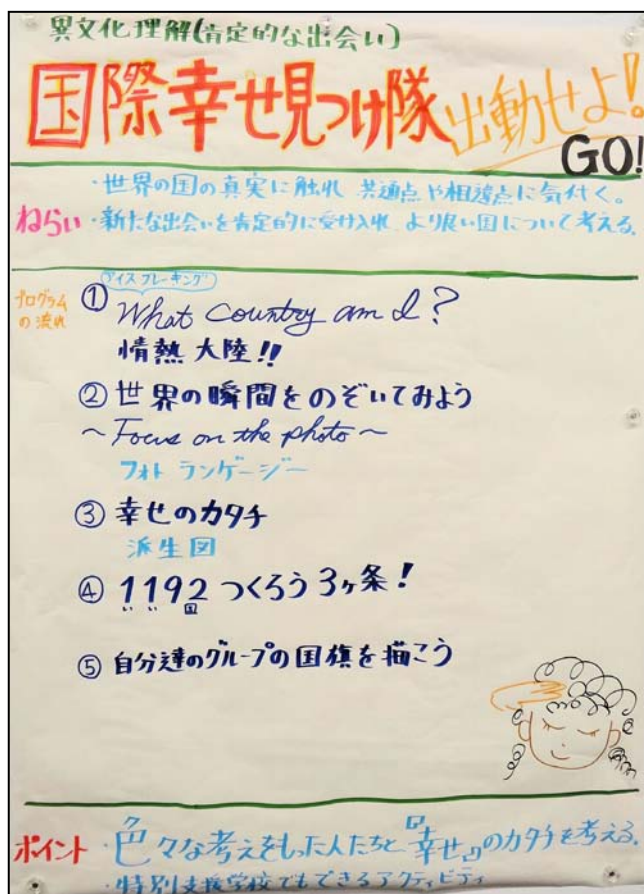 異文化理解(肯定的な出会い)
国際幸せ見つけ隊出動せよ!
GO!
ねらい
・世界の国の真実に触れ 共通点や相違点に気付く。
・新たな出会いを肯定的に受け入れ より良い国について考える。
プログラムの流れ
アイスブレーキング
① What country am I?
情熱大陸!!
② 世界の瞬間をのぞいてみよう
~Focus on the photo~
フォトランゲージー
③ 幸せのカタチ
派生図
④ 1192つくろう3ヶ条!
い い 国
⑤ 自分達のグループの国旗を描こう
ポイント
・色々な考えをもった人たちと『幸せ』のカタチを考える。
・特別支援学校でもできるアクティビティ